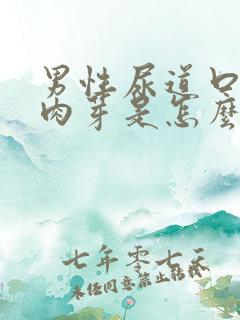 男性尿道口
肉芽是怎麼
七年零七天
未经同意禁止转载